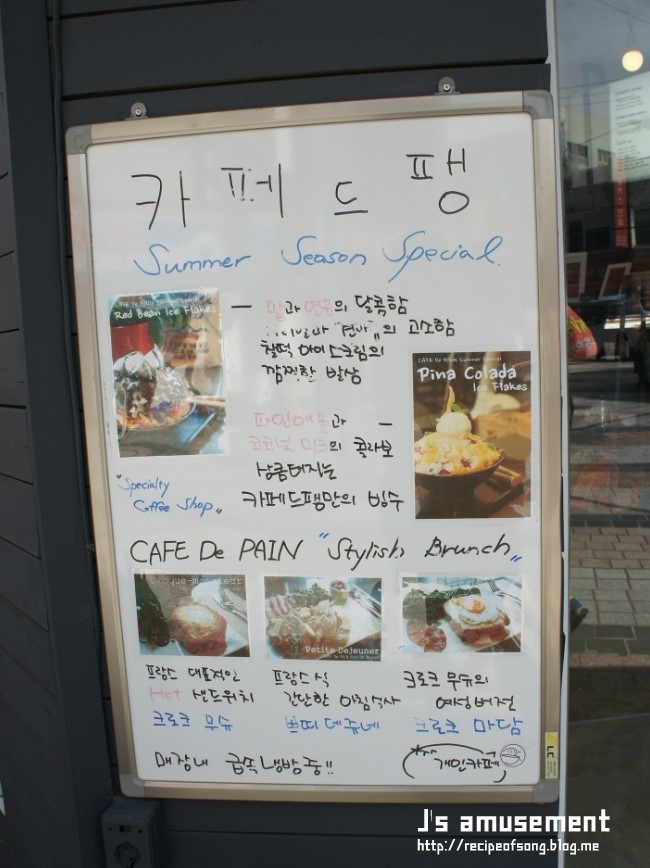 카페드팽
Summer Season Special.
CAFE De PAIN Summer Special
Red Bean Ice Flakes
팥과 얼음의 달콤함
의 고소함
찰떡 아이스크림의
깜찍한 발상
CAFE De PAIN Summer Special
Pina Colada
Ice Flakes
파인애플과
코코넛 밀크의 콜라보
상콤터지는
카페드팽만의 빙수
"Specialty
Coffee Shop"
CAFE De PAIN "Stylish Brunch"
Croque-monsieur
Petite Dejeuner
프랑스 대표적인
Hot 샌드위치
크로크 무슈
프랑스식
간단한 아침식사
쁘띠데쥬네
크로크 무슈의
여성버전
크로크 마담
매장내 급쪽냉방중!!
개인카페
LC
J's amusement
http://recipeofsong.blog.me